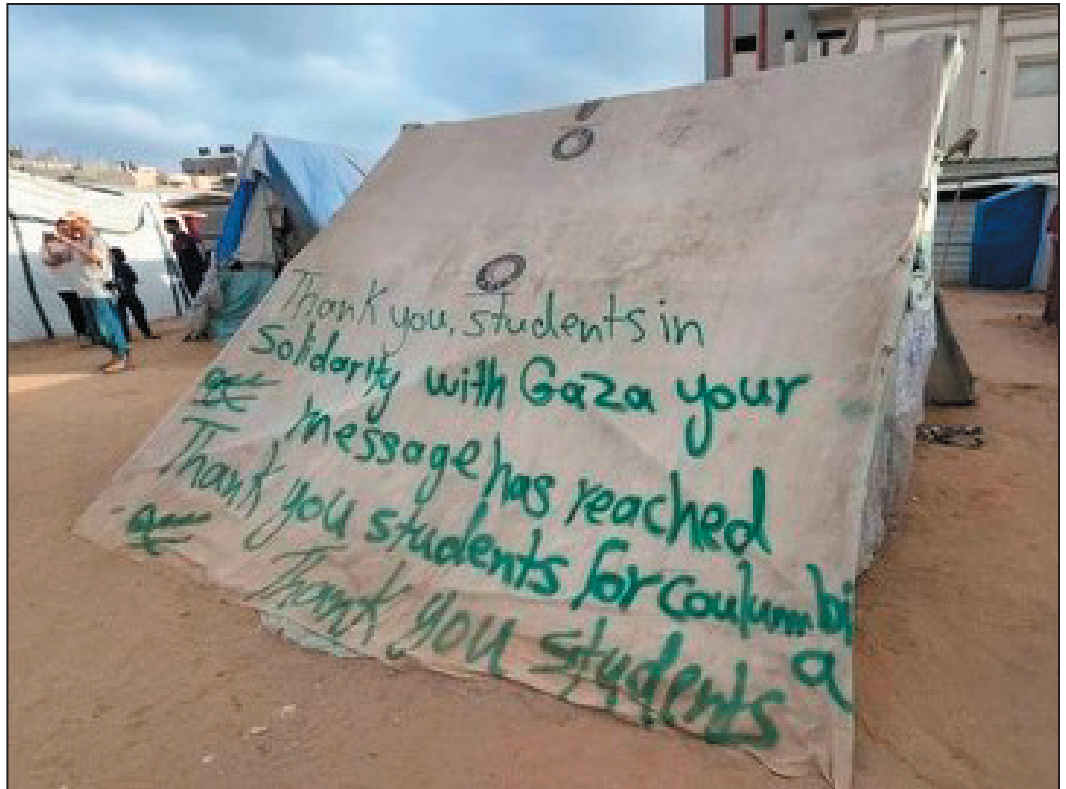 Thank you, students in
Solidarity with Gaza your
message has reached
Thank you students for coulumbi
a
Thank you students